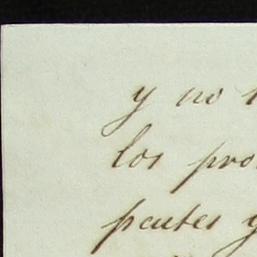 y no
los pro
pcutes y